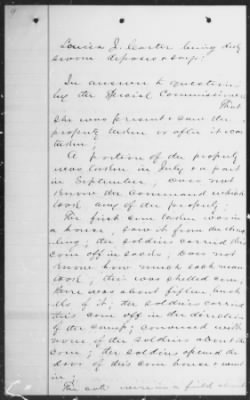 Louisa J. Carter being duly
sworn deposes & says:
In answer to questions
by the Special Commissioner
That
she was present & saw the
property taken or after it was
taken;
A portion of the property
was taken in July & a part
in September; does not
know the command which
took any of the property.
The first corn taken was in
a house, saw it from the dwel-
ling; the soldiers carried the
corn off in sacks; does not
know how much each man
took; this was shelled corn,
there was about fifteen bush-
els of it; the soldiers carried
this corn off in the direction
of the camp; conversed with
none of the soldiers about the
corn; the soldiers opened the
door of this corn house & went
in;
The oats were in a field